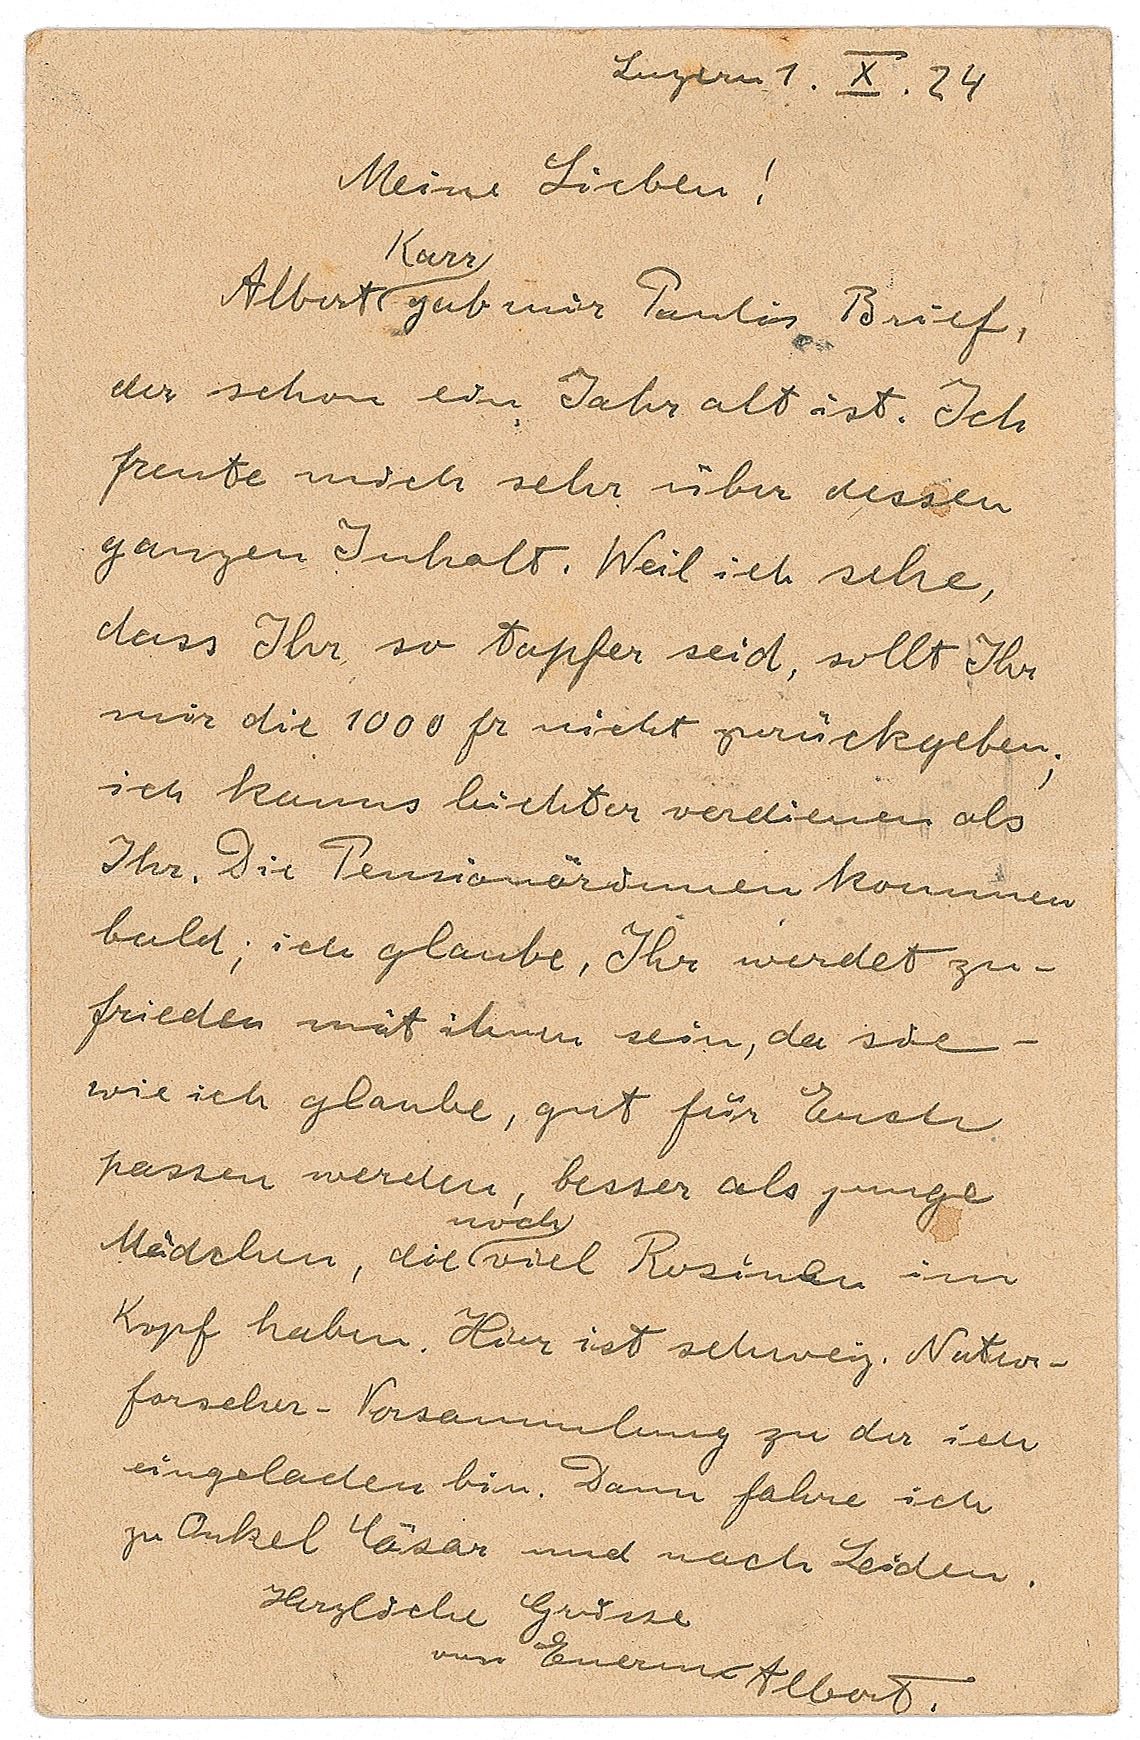 Luzern 1. X. 24
Meine Lieben!
Karr
Albert gab mir Paulis Brief,
der schon ein Jahr alt ist. Ich
freute mich sehr über dessen
ganzen Inhalt. Weil ich sehe,
dass Ihr so tapfer seid, sollt Ihr
mir die 1000 fr nicht zurückgeben;
ich kanns leichter verdienen als
Ihr. Die Pensionärinnen kommen
bald; ich glaube, Ihr werdet zu-
frieden mit ihnen sein, da sie -
wie ich glaube, gut für Euch
passen werden, besser als junge
noch
Mädchen, die viel Rosinen im
Kopf haben. Hier ist schweiz. Natur-
forscher-Versammlung zu der ich
eingeladen bin. Dann fahre ich
zu Onkel Cäsar und nach Leiden.
Herzliche Grüsse
von Euerm Albert.